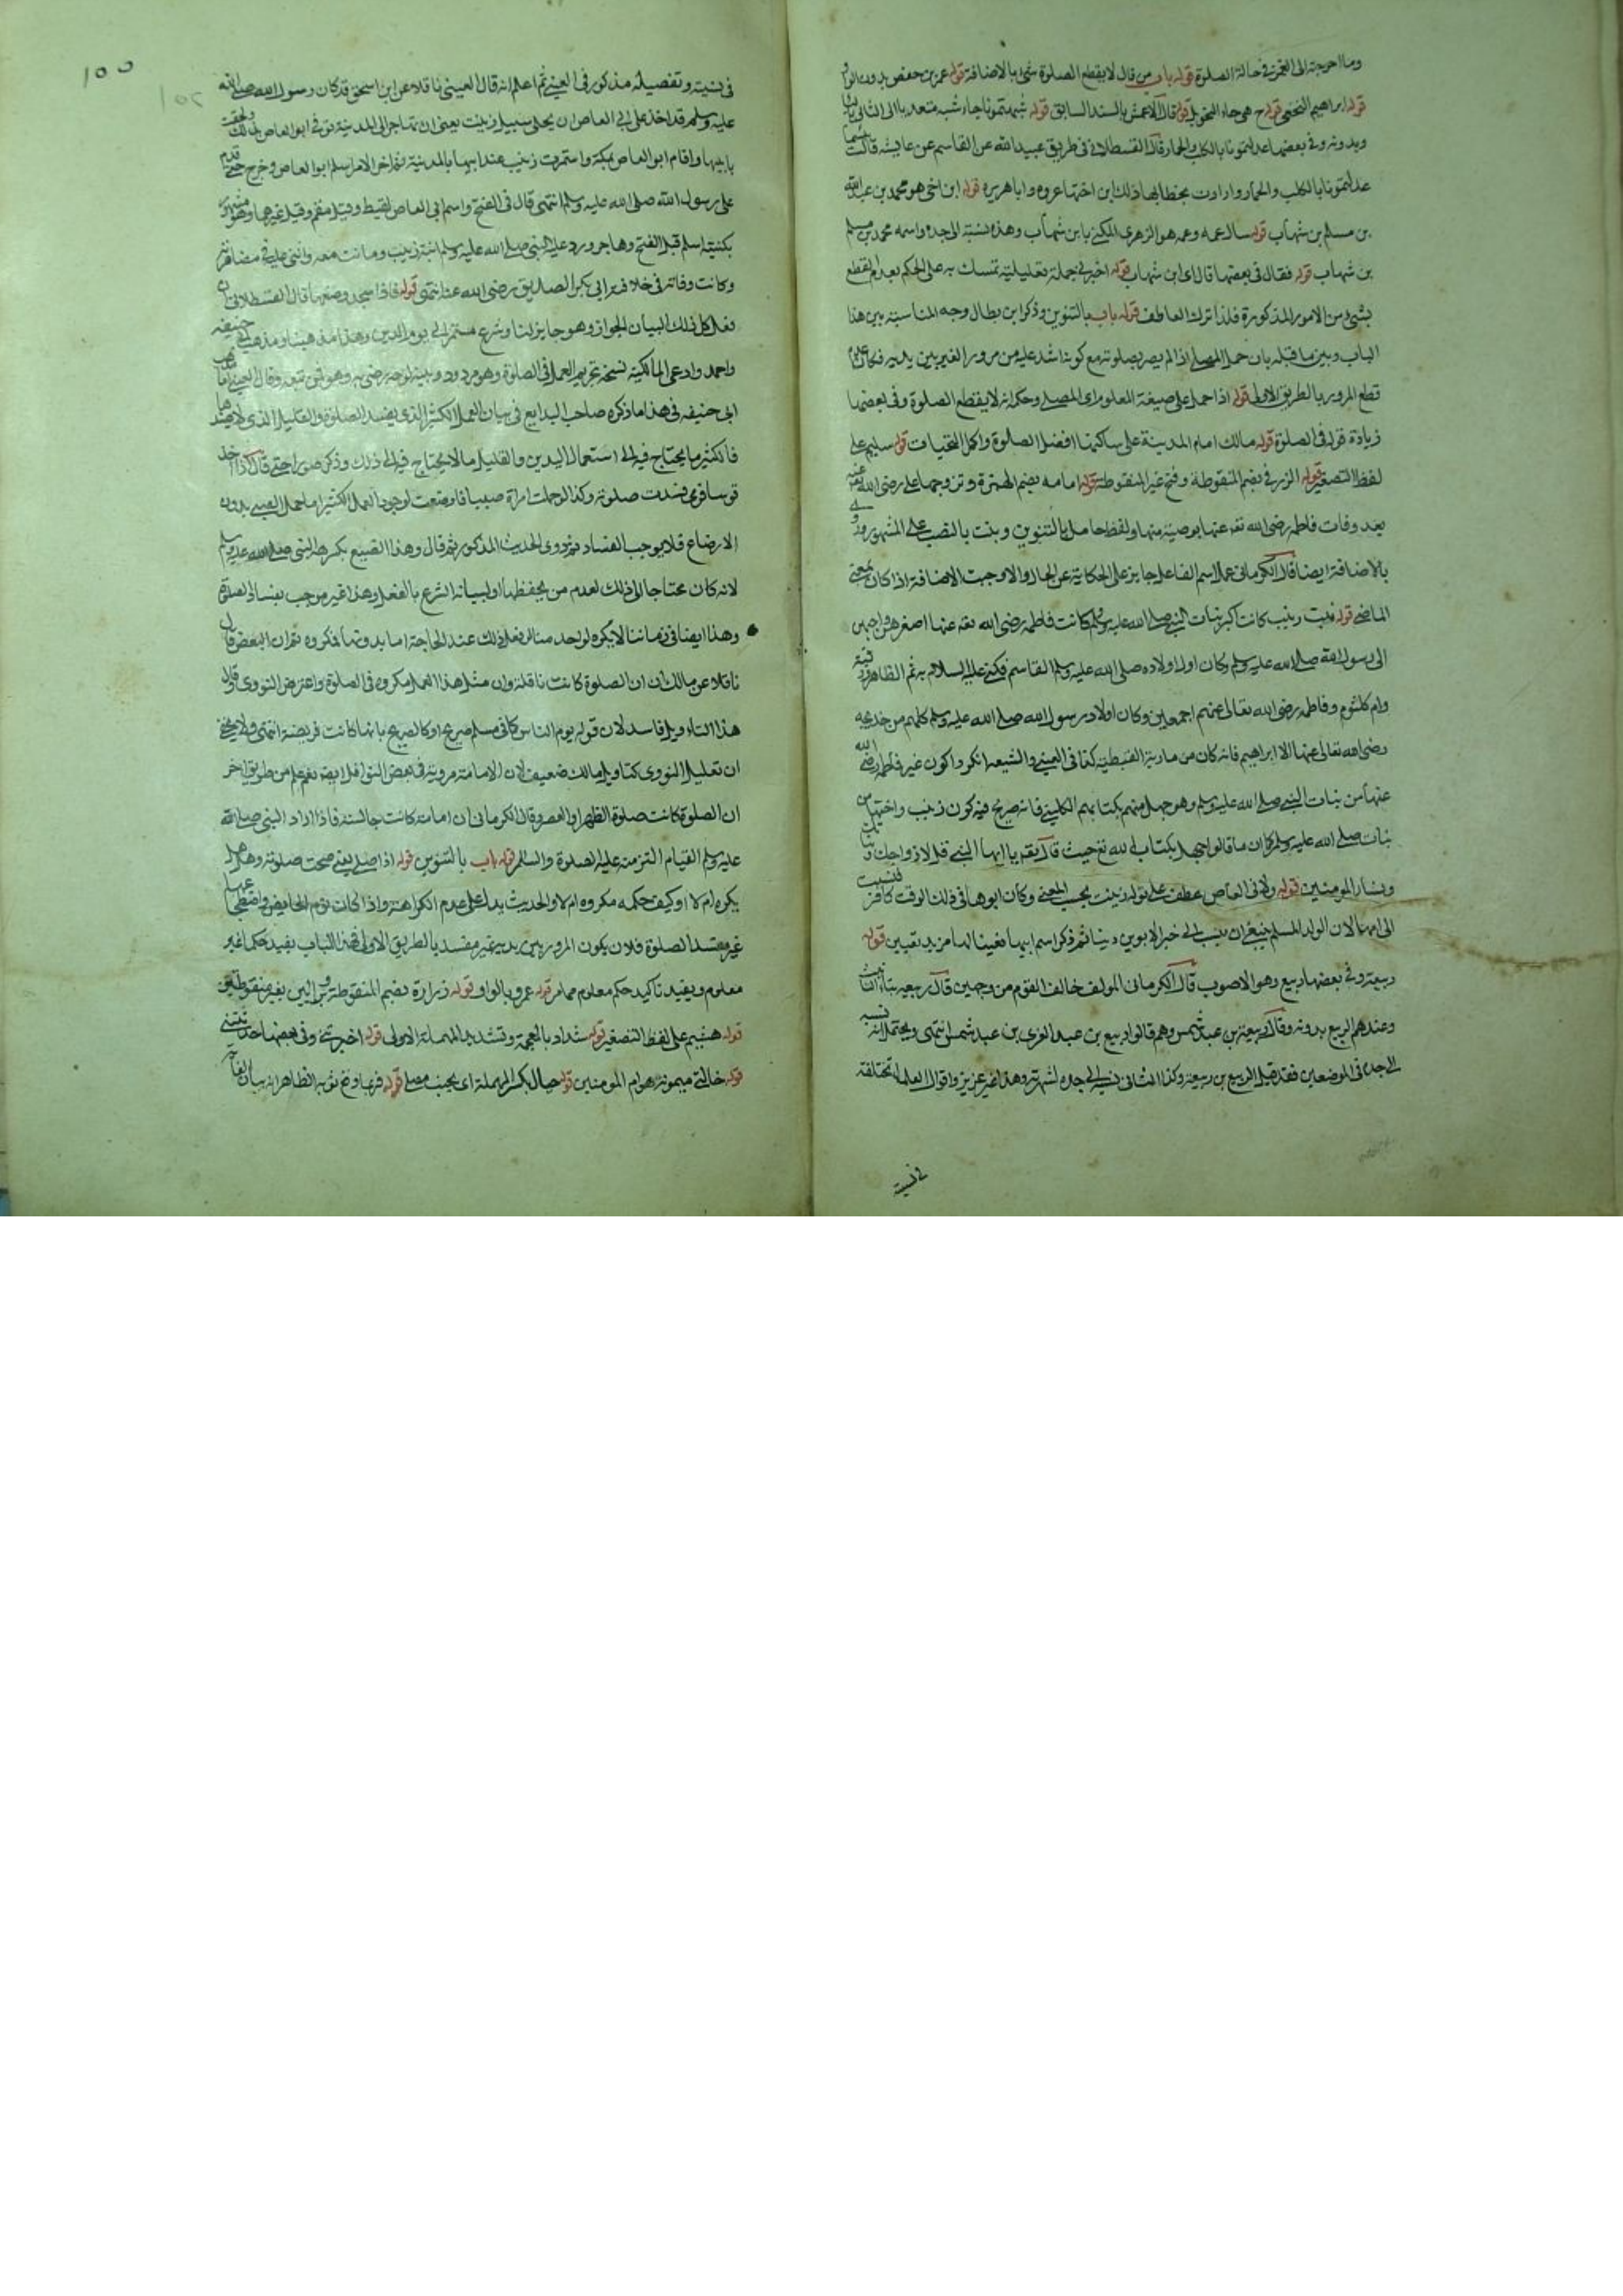 وما احوجته الى الغمز في حالة الصلوة قوله باب من قال لا يقطع الصلوة شئ بالاضافة قوله عمر بن حفص بدون الواو
قوله ابراهيم النخعي قوله ح هي حاء التحويل قوله قال الاعمش بالسند السابق قوله شبهتمونا جاء شبه متعد بالى الثانى
وبدونه وفي بعضها عدلتمونا بالكلب والحمار قال القسطلانى في طريق عبيد الله عن القاسم عن عايشه قالت
عدلتمونا بالكلب والحمار وارادت بخطابها ذلك ابن اختها عروه وابا هريره قوله ابن اخي هو محمد بن عبد الله
بن مسلم بن شهاب قوله سال عمه وعمه هو الزهرى المكنى بابن شهاب وهذه نسبته الى جده واسمه محمد بن مسلم
بن شهاب قوله فقال في بعضها قال اى ابن شهاب قوله اخبرني جملة تعليلية تمسك به على الحكم بعدم القطع
بشئ من الامور المذكورة فلذا ترك العاطف قوله باب بالتنوين وذكر ابن بطال وجه المناسبة بين هذا
الباب وبين ما قبله بان حمل المصلى اذا لم يضر بصلوته مع كونه اشد عليه من مرور الغير بين يديه فكان عدم
قطع المرور بالطريق الاولى قوله اذا حمل على صيغة المعلوم اى المصلى وحكمه انه لا يقطع الصلوة وفي بعضها
زيادة قوله في الصلوة قوله مالك امام المدينة على ساكنها افضل الصلوة واكمل التحيات قوله سليم على
لفظ التصغير قوله الزرقي بضم المنقوطة وفتح غير المنقوطة قوله امامه بضم الهمزة وتزوجها على رضى الله عنه
بعد وفات فاطمه رضى الله تعه عنها بوصية منها ولفظ حامل بالتنوين وبنت بالنصب على المشهور وروى
بالاضافة ايضا قال الكرمانى عمل اسم الفاعل جايز على الحكاية عن الحال والا وجبت الاضافة اذا كان بمعنى
الماضى قوله بنت زينب كانت اكبر بنات النبي صلى الله عليه وسلم وكانت فاطمه رضى الله تعه عنها اصغرهن واحبهن
الى رسول الله صلى الله عليه وسلم وكان اول اولاده صلى الله عليه وسلم القاسم فكنى عليه السلام به ثم الظاهر رقية
وام كلثوم وفاطمه رضى الله تعالى عنهم اجمعين وكان اولاد رسول الله صلى الله عليه وسلم كلهم من خديجه
رضى الله تعالى عنها الا ابراهيم فانه كان من مارية القبطية كذا في العينى والشيعه انكروا كون غير فاطمه رضى الله
عنها من بنات النبي صلى الله عليه وسلم وهو جهل منهم بكتابهم الكلينى فانه صريح فيه كون زينب واختها من
بنات صلى الله عليه وسلم كما ان ما قالوا جهل بكتاب الله تع حيث قال تعه يا ايها النبي قل لازواجك وبناتك
ونساء المومنين قوله ولابى العاص عطف على قوله زينب بحسب المعنى وكان ابوها في ذلك الوقت كافرا فنسبت
الى امها لان الولد المسلم ينبغى ان ينسب الى خير الابوين دينا ثم ذكر اسم ابيها تعيينا لها مزيد تعيين قوله
ربيعة وفي بعضها ربيع وهو الاصوب قال الكرمانى المولف خالف القوم من وجهين قال ربيعه بتاء التانيث
وعندهم الربيع بدونه وقال ربيعة بن عبد شمس وهم قالوا ربيع بن عبد العزى بن عبد شمس انتهى ويحتمل انه نسبه
الى جده في الموضعين فقد قيل الربيع بن ربيعه وكذا الثانى نسبه الى جده لشهرته وهذا غير عزيز واقوال العلماء مختلفة
في نسبته
في نسبته وتفصيله مذكور في العينى ثم اعلم انه قال العينى ناقلا عن ابن اسحق قد كان رسول الله صلى الله
عليه وسلم قد اخذ على ابى العاص ان يخلى سبيل زينب يعنى ان تهاجر الى المدينة فوفى ابو العاص بذلك ولحقت
بابيها واقام ابو العاص بمكة واستمرت زينب عند ابيها بالمدينة ثم اخر الامر اسلم ابو العاص وخرج حتى قدم
على رسول الله صلى الله عليه وسلم انتهى قال في الفتح واسم ابى العاص لقيط وقيل مقسم وقيل غيرهما وهو مشهور
بكنيته اسلم قبل الفتح وهاجر ورد عليه النبي صلى الله عليه وسلم ابنته زينب وماتت معه واثنى عليه في مصاهرته
وكانت وفاته في خلافة ابى بكر الصديق رضى الله عنه انتهى قوله فاذا سجد وضعها قال القسطلانى ان
فعل كل ذلك لبيان الجواز وهو جايز لنا وشرع مستمر الى يوم الدين وهذا مذهبنا ومذهب ابى حنيفه
واحمد وادعى المالكية نسخه تحريم العمل في الصلوة وهو مردود وقال العينى اما مذهب
ابى حنيفه في هذا ما ذكره صاحب البدايع في بيان العمل الكثير الذى يفسد الصلوة والقليل الذى لا يفسدها
فالكثير ما يحتاج فيه الى استعمال اليدين والقليل ما لا يحتاج فيه الى ذلك وذكر صورا حتى قال اذا اخذ
قوسا فرمى فسدت صلوته وكذا لو حملت امراة صبيا فارضعت لوجود العمل الكثير اما حمل الصبى بدون
الارضاع فلا يوجب الفساد ثم روى الحديث المذكور ثم قال وهذا الصنيع لم يكره النبي صلى الله عليه وسلم
لانه كان محتاجا الى ذلك لعدم من يحفظها او لبيانه الشرع بالفعل وهذا غير موجب بفساد الصلوة
وهذا ايضا في زماننا لا يكره لواحد منا لو فعل ذلك عند الحاجة اما بدونها فمكروه ثم ان البعض قال
ناقلا عن مالك ان الصلوة كانت نافلة وان مثل هذا العمل مكروه في الصلوة واعترض النووى وقال
هذا التاويل فاسد لان قوله يوم الناس كما في مسلم صريح او كالصريح بانها كانت فريضة انتهى ولا يخفى
ان تعليل النووى كتاويل مالك ضعيف لان الامامة مروية في بعض النوافل ايضا نعم علم من طريق اخر
ان الصلوة كانت صلوة الظهر او العصر وقال الكرمانى ان امامة كانت جالسة فاذا اراد النبي صلى الله
عليه وسلم القيام التزمته عليه الصلوة والسلام قوله باب بالتنوين قوله اذا صلى يعنى صحت صلوته وهل
يكره ام لا او كيف حكمه مكروه ام لا والحديث يدل على عدم الكراهة واذا كانت نوم الحايض واضطجاعها
غير مفسد الصلوة فلان يكون المرور بين يديه غير مفسد بالطريق الاولى فهذا الباب يفيد حكما غير
معلوم ويفيد تاكيد حكم معلوم مما مر قوله عمرو بالواو قوله زرارة بضم المنقوطة
قوله هشيم على لفظ التصغير قوله شداد بالمعجمة وتشديد المهملة الاولى قوله اخبرتنى وفي بعضها حدثتنى
قوله خالتى ميمونة هو ام المومنين قوله حيال بكسر المهملة اى بجنب مصلى قوله فربما وقع ثوبه الظاهر انه بيان